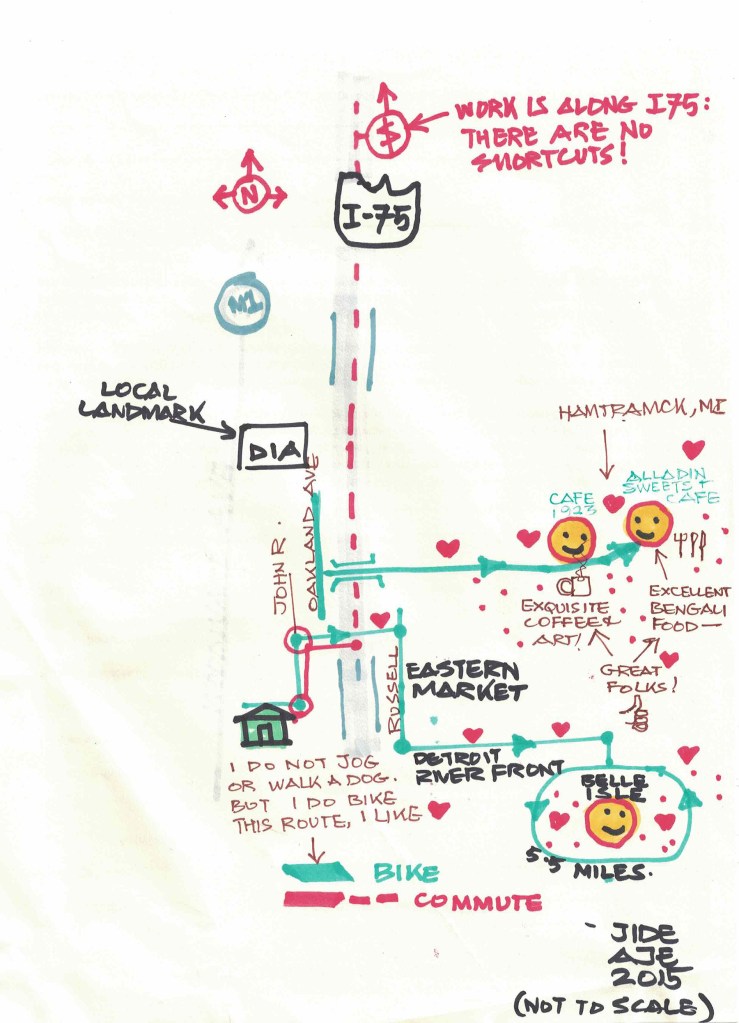 WORK IS ALONG I75:
THERE ARE NO
SHORTCUTS!
$
N
I-75
M1
LOCAL
LANDMARK
DIA
HAMTRAMCK, MI
ALLADIN
SWEETS +
CAFE
CAFE
1923
OAKLAND AVE
JOHN R.
EXQUISITE
COFFEE &
ART!
EXCELLENT
BENGALI
FOOD —
GREAT
FOLKS!
EASTERN
MARKET
RUSSELL
DETROIT
RIVER FRONT
BELLE
ISLE
5.5 MILES.
I DO NOT JOG
OR WALK A DOG.
BUT I DO BIKE
THIS ROUTE, I LIKE
BIKE
COMMUTE
JIDE
AJE
2015
(NOT TO SCALE)